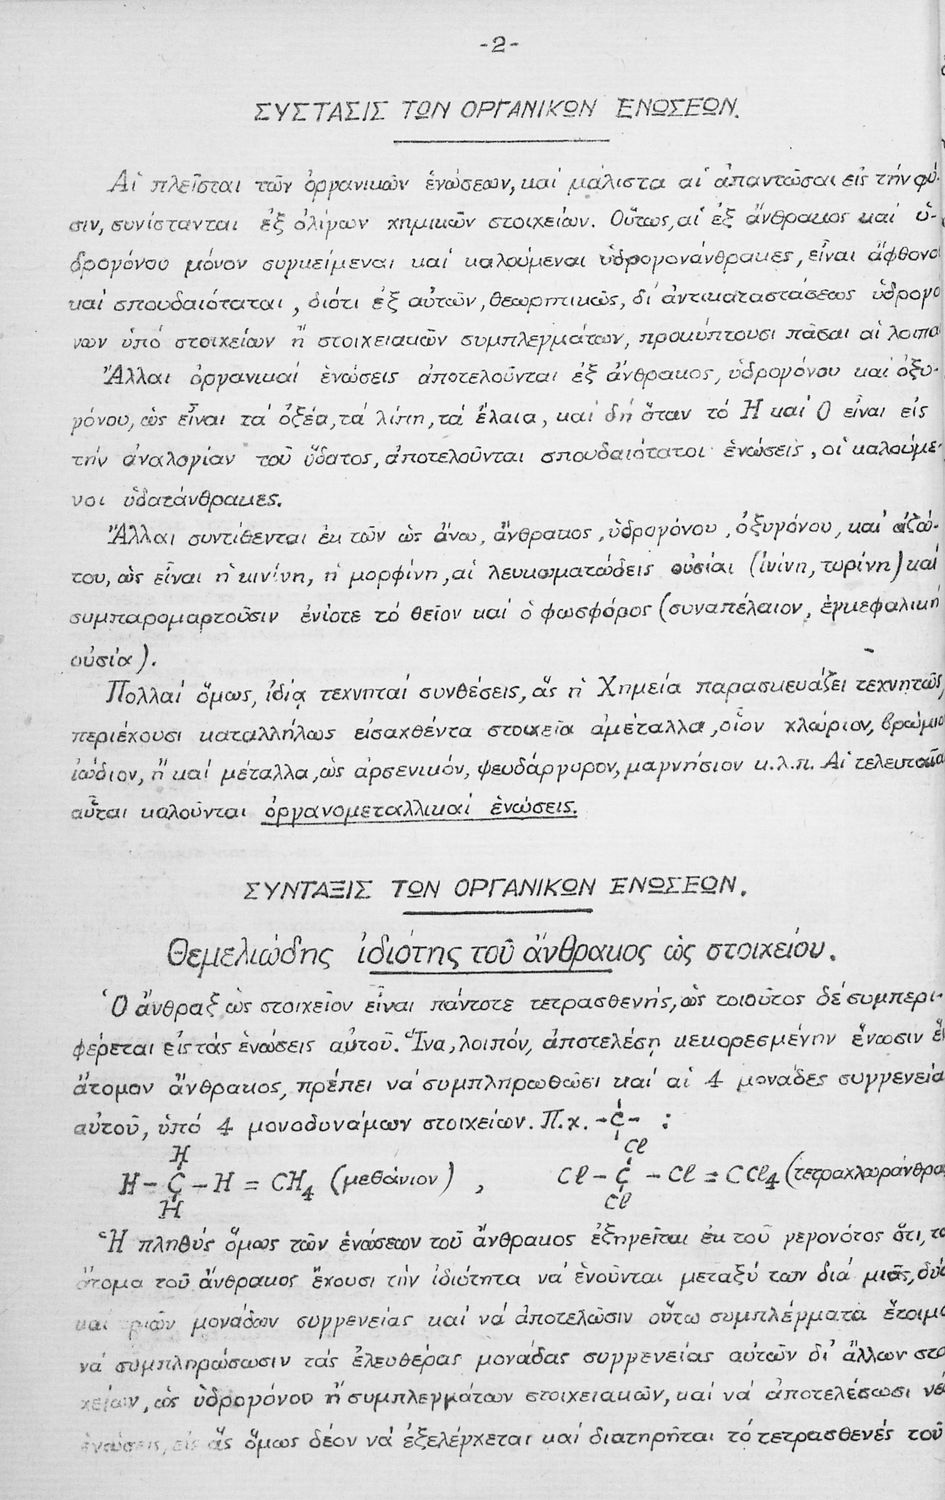 -2-
ΣΥΣΤΑΣΙΣ ΤΩΝ ΟΡΓΑΝΙΚΩΝ ἙΝΩΣΕΩΝ.
Αἱ πλεῖσται τῶν ὀργανικῶν ἑνώσεων, καί μάλιστα αἱ ἀπαντῶσαι εἰς τήν φύ-
σιν, συνίστανται ἐξ ὀλίγων χημικῶν στοιχείων. Οὕτως, αἱ ἐξ ἄνθρακος καί ὑ-
δρογόνου μόνον συγκείμεναι καί καλούμεναι ὑδρογονάνθρακες, εἶναι ἄφθονο
καί σπουδαιόταται, διότι ἐξ αὐτῶν, θεωρητικῶς, δι' ἀντικαταστάσεως ὑδρογο
νων ὑπό στοιχείων ἤ στοιχειακῶν συμπλεγμάτων, προκύπτουσι πᾶσαι αἱ λοιπα
Ἄλλαι ὀργανικαί ἑνώσεις ἀποτελοῦνται ἐξ ἄνθρακος, ὑδρογόνου καί ὀξυ-
γόνου, ὡς εἶναι τά ὀξέα, τά λίπη, τά ἔλαια, καί δή ὅταν τό Η καί Ο εἶναι εἰς
τήν ἀναλογίαν τοῦ ὕδατος, ἀποτελοῦνται σπουδαιότατοι ἑνώσεις, οἱ καλούμε-
νοι ὑδατάνθρακες.
Ἄλλαι συντίθενται ἐκ τῶν ὡς ἄνω, ἄνθρακος, ὑδρογόνου, ὀξυγόνου, καί ἀζώ-
του, ὡς εἶναι ἡ κινίνη, ἡ μορφίνη, αἱ λευκωματώδεις οὐσίαι (ἰνίνη, τυρίνη) καί
συμπαρομαρτοῦσιν ἐνίοτε τό θεῖον καί ὁ φωσφόρος (συναπέλαιον, ἐγκεφαλική
οὐσία).
Πολλαί ὅμως, ἰδίᾳ τεχνηταί συνθέσεις, ἅς ἡ Χημεία παρασκευάζει τεχνητῶς,
περιέχουσι καταλλήλως εἰσαχθέντα στοιχεῖα ἀμέταλλα, οἷον χλώριον, βρώμιο
ἰώδιον, ἤ καί μέταλλα, ὡς ἀρσενικόν, ψευδάργυρον, μαγνήσιον κ.λ.π. Αἱ τελευταῖα
αὗται καλοῦνται ὀργανομεταλλικαί ἑνώσεις.
ΣΥΝΤΑΞΙΣ ΤΩΝ ΟΡΓΑΝΙΚΩΝ ἙΝΩΣΕΩΝ.
Θεμελιώδης ἰδιότης τοῦ ἄνθρακος ὡς στοιχείου.
Ὁ ἄνθραξ ὡς στοιχεῖον εἶναι πάντοτε τετρασθενής, ὡς τοιοῦτος δέ συμπερι-
φέρεται εἰς τάς ἑνώσεις αὐτοῦ. Ἵνα, λοιπόν, ἀποτελέσῃ κεκορεσμένην ἕνωσιν ἕ
ἄτομον ἄνθρακος, πρέπει νά συμπληρωθῶσι καί αἱ 4 μονάδες συγγενεία
αὐτοῦ, ὑπό 4 μονοδυνάμων στοιχείων. Π.χ. -C- :
H Cl
H - C - H = CH4 (μεθάνιον) , Cl - C - Cl = CCl4 (τετραχλωράνθρα
H Cl
Ἡ πληθύς ὅμως τῶν ἑνώσεων τοῦ ἄνθρακος ἐξηγεῖται ἐκ τοῦ γεγονότος ὅτι, τα
ἄτομα τοῦ ἄνθρακος ἔχουσι τήν ἰδιότητα νά ἑνοῦνται μεταξύ των διά μιᾶς, δύο
καί τριῶν μονάδων συγγενείας καί νά ἀποτελῶσιν οὕτω συμπλέγματα ἕτοιμα
νά συμπληρώσωσιν τάς ἐλευθέρας μονάδας συγγενείας αὐτῶν δι' ἄλλων στο
χείων, ὡς ὑδρογόνου ἤ συμπλεγμάτων στοιχειακῶν, καί νά ἀποτελέσωσι νέ
ἑνώσεις, εἰς ἅς ὅμως δέον νά ἐξελέγχεται καί διατηρῆται τό τετρασθενές τοῦ